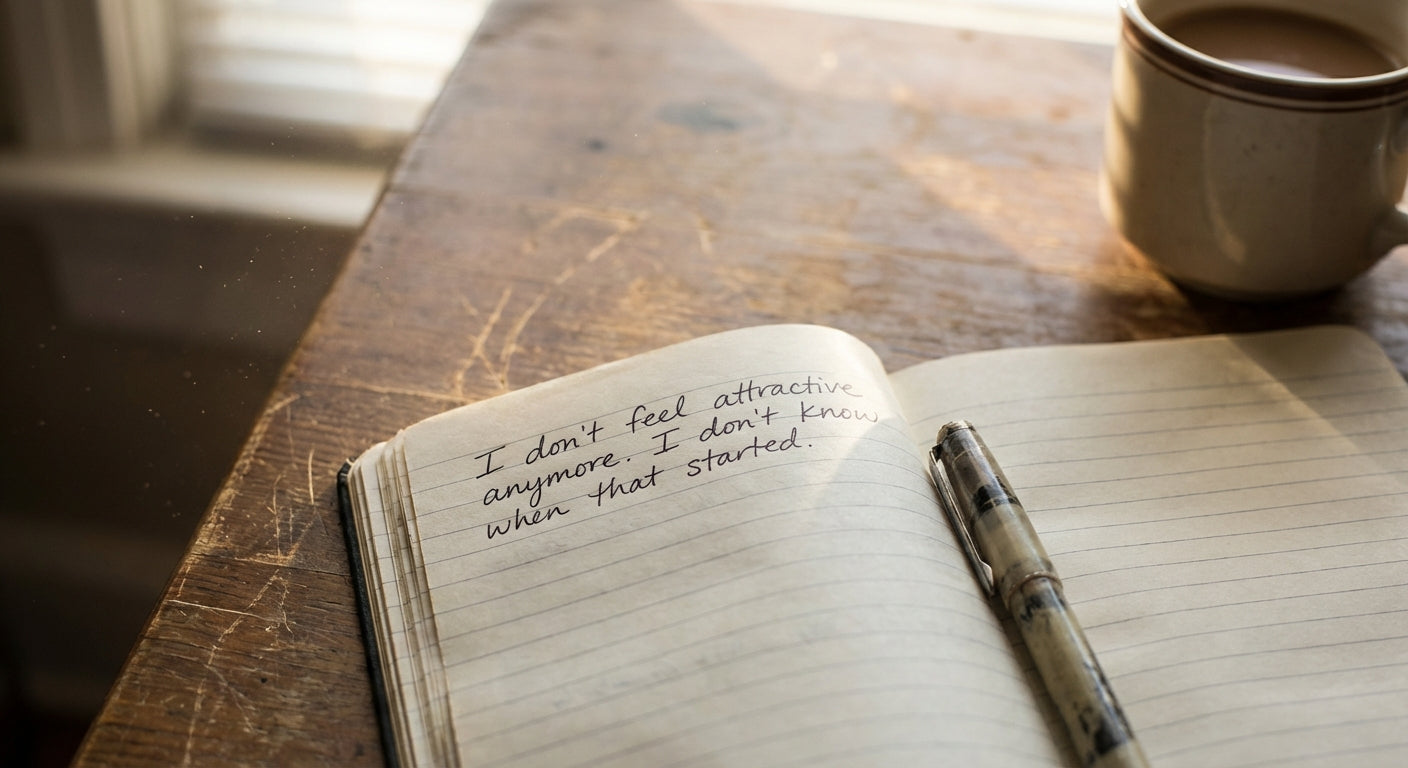 I don't feel attractive
anymore. I don't know
when that started.